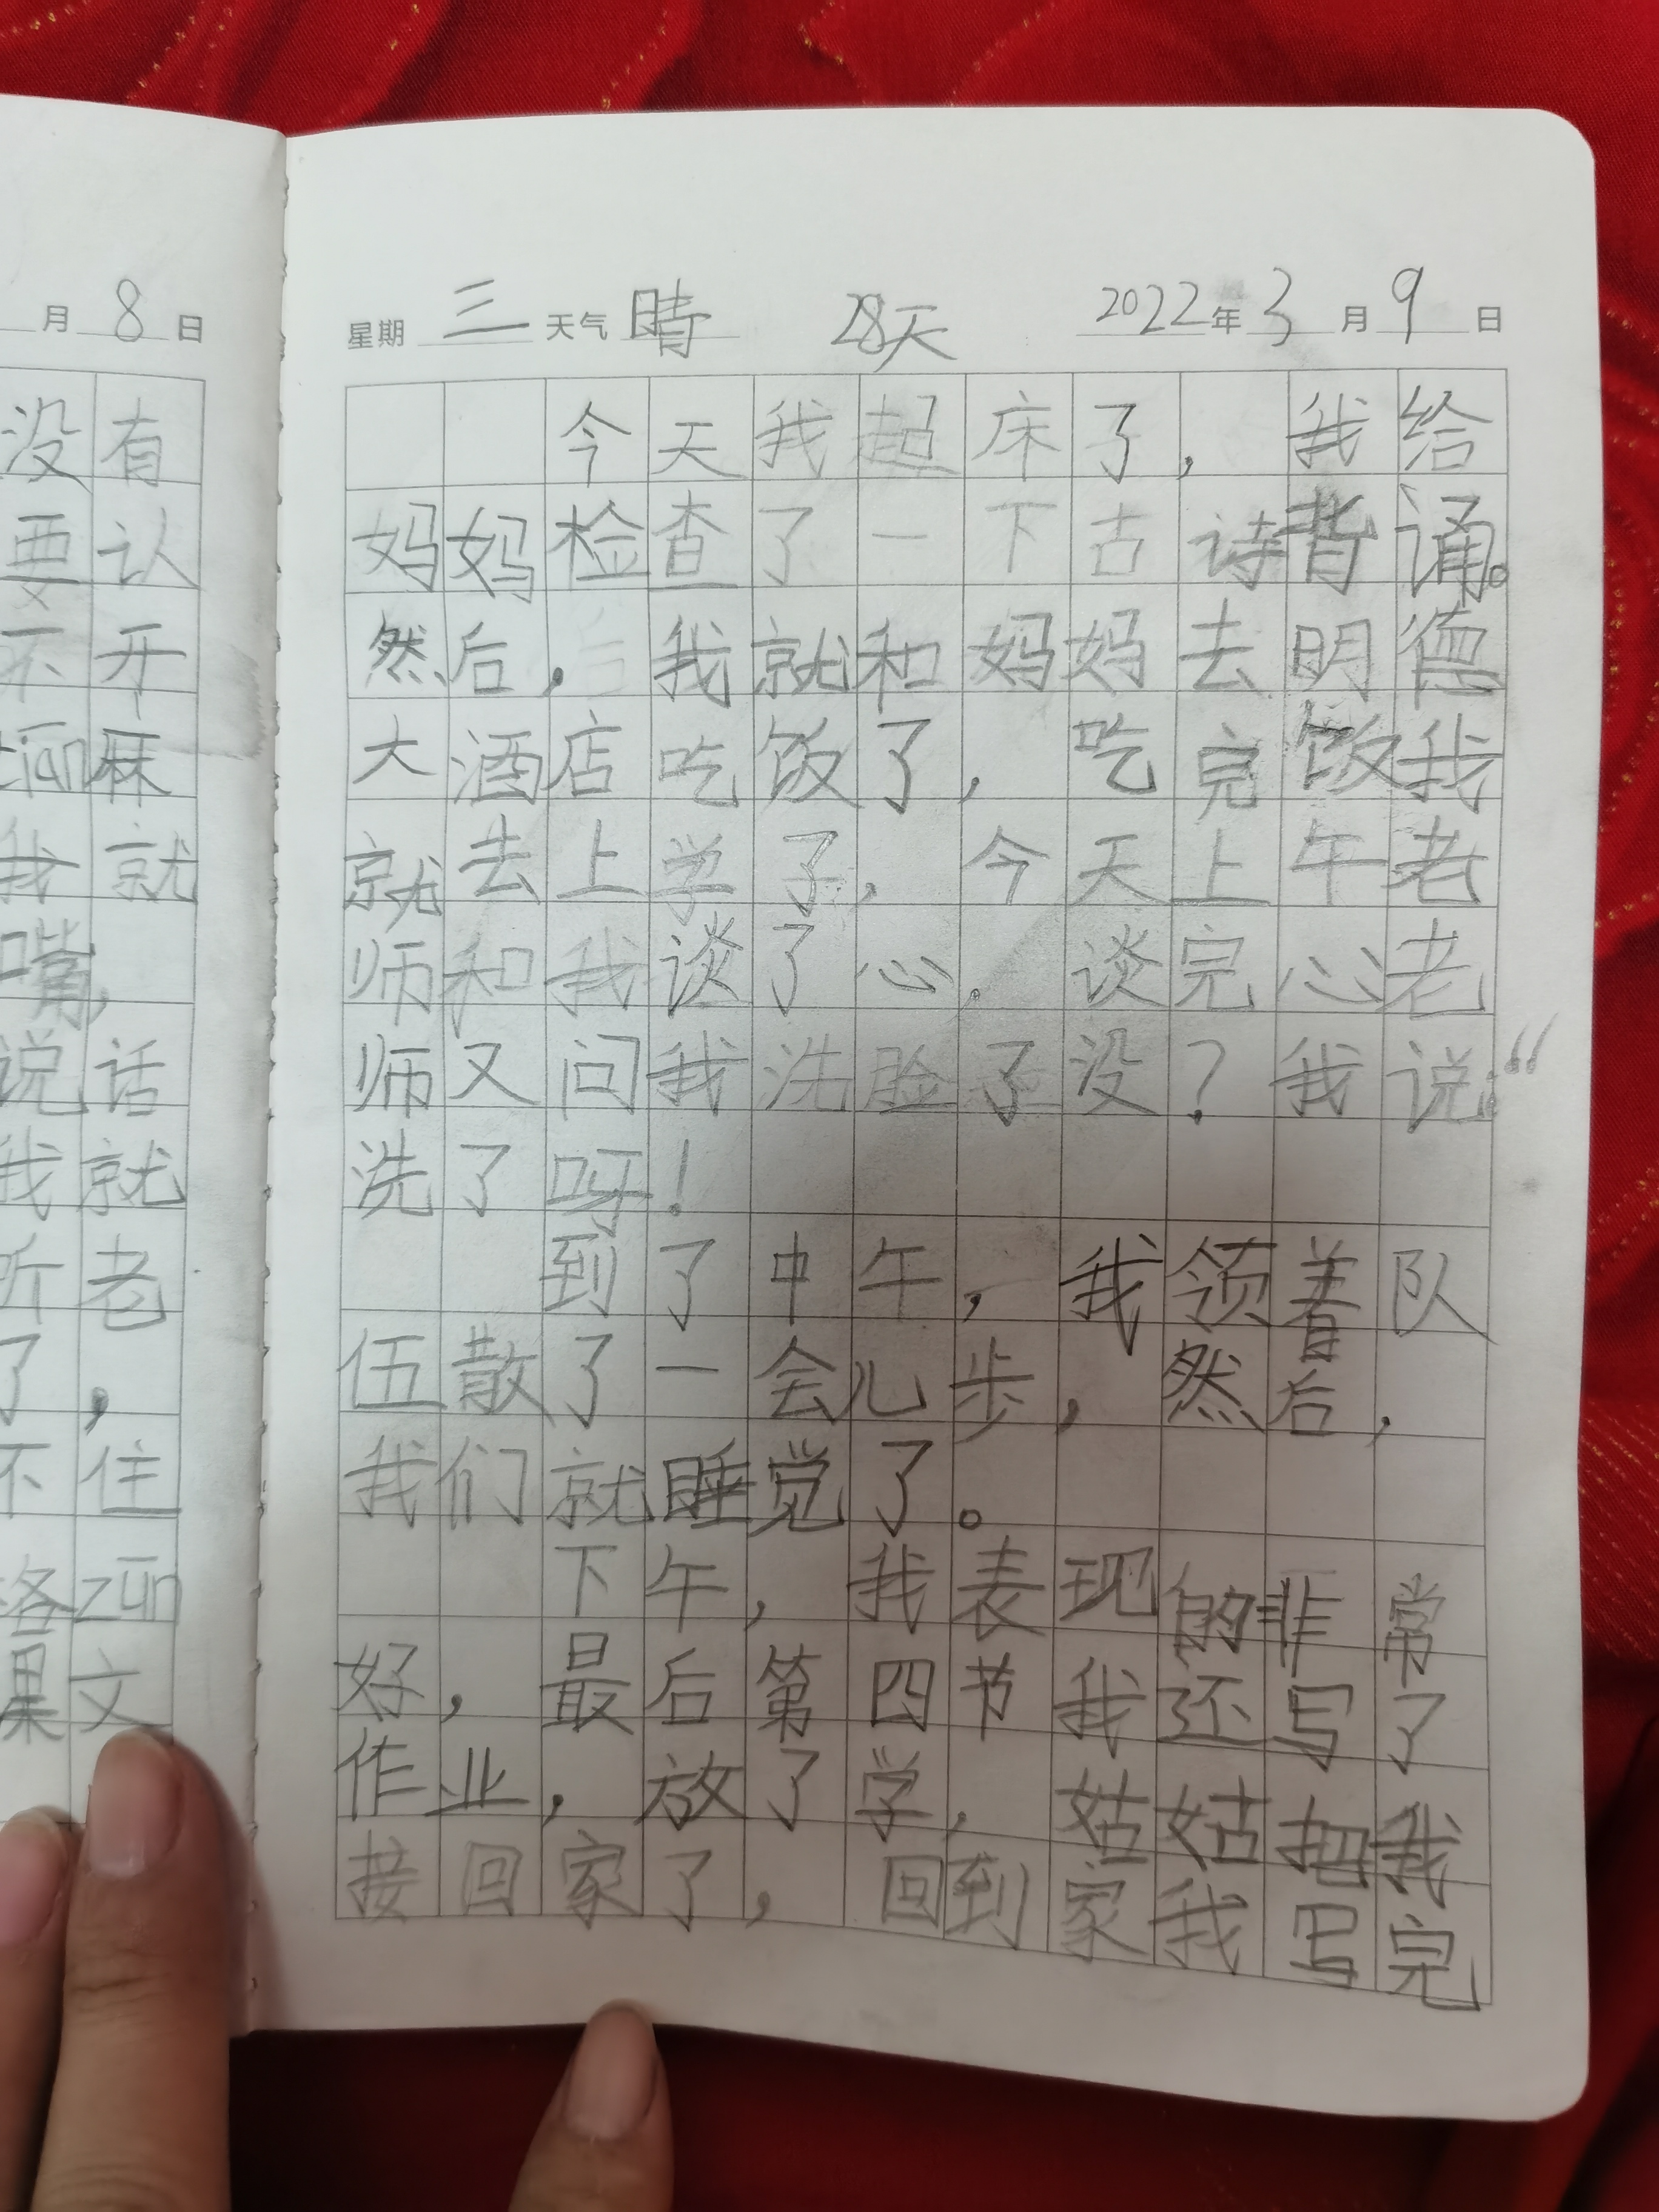 月8日
没有
要认
不开
tiān麻
我就
嘴,
说话
我就
听老
了,
不住
各zūn
果文
星期 三 天气 晴 28天 2022年3月9日
今天我起床了,我给
妈妈检查了一下古诗背诵。
然后,我就和妈妈去明德
大酒店吃饭了,吃完饭我
就去上学了,今天上午老
师和我谈了心,谈完心老
师又问我洗脸了没?我说:“
洗了呀!
到了中午,我领着队
伍散了一会儿步,然后,
我们就睡觉了。
下午,我表现的非常
好,最后第四节我还写了
作业,放了学,姑姑把我
接回家了,回到家我写完